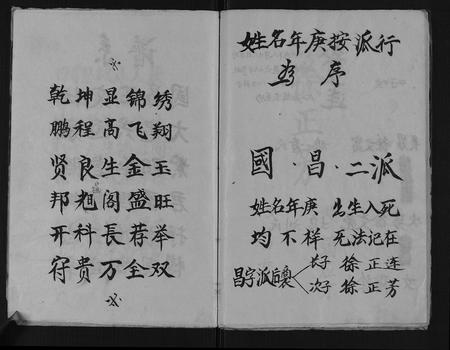 姓名年庚按派行
为序
國·昌·二派
姓名年庚 出生入死
均不祥 死法記在
昌字派后裏
长子 徐正连
次子 徐正芳
乾坤显锦绣
鹏程高飞翔
贤良生金玉
邦 阁盛旺
开科長荐举
符贵万全双